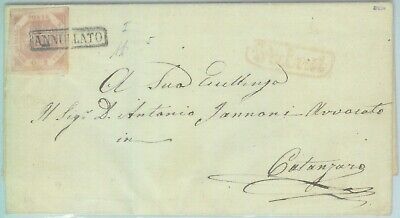 ANNULLATO
A Sua Eccellenza
Il Sigr. D. Antonio Jannoni Avvocato
in
Catanzaro